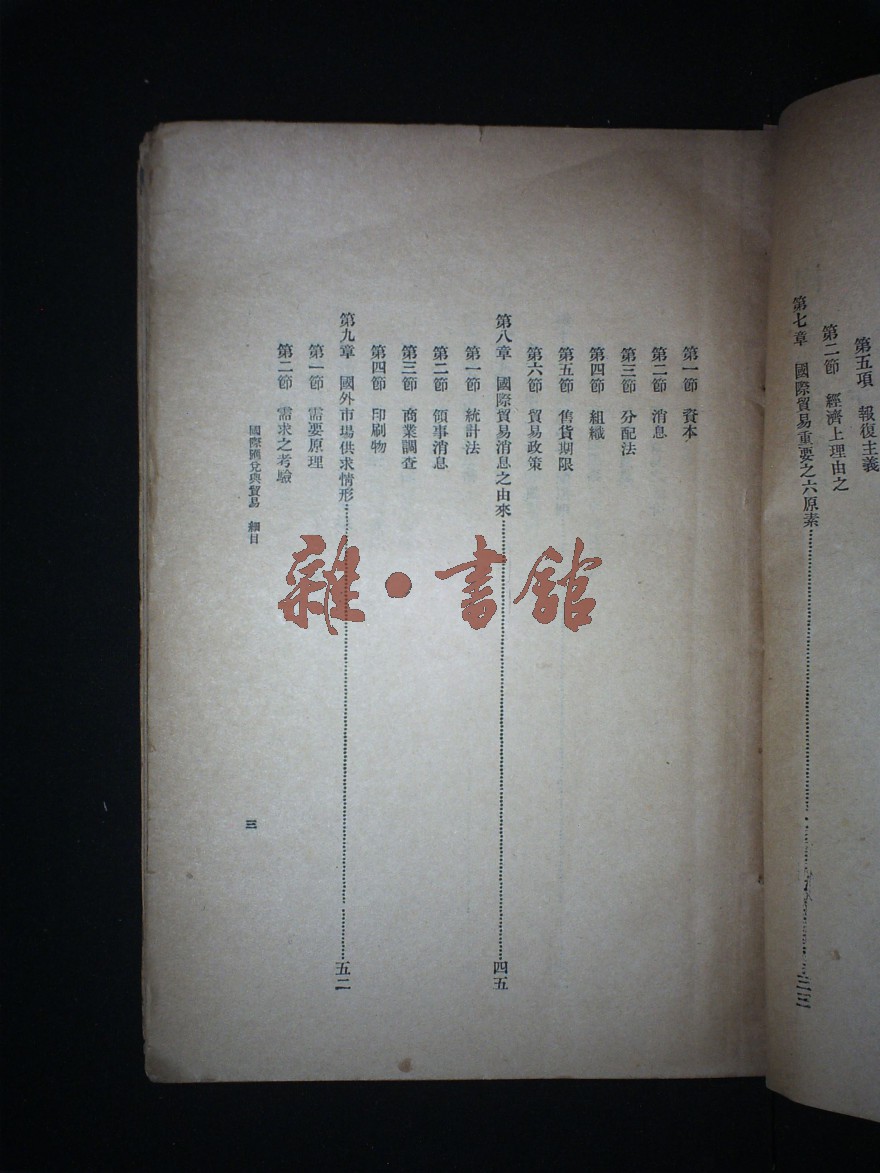 第五項　報復主義
第二節　經濟上理由之
第七章　國際貿易重要之六原素……三三
第一節　資本
第二節　消息
第三節　分配法
第四節　組織
第五節　售貨期限
第六節　貿易政策
第八章　國際貿易消息之由來……四五
第一節　統計法
第二節　領事消息
第三節　商業調查
第四節　印刷物
第九章　國外市場供求情形……五二
第一節　需要原理
第二節　需求之考驗
國際匯兌與貿易　細目
三
雜·書館